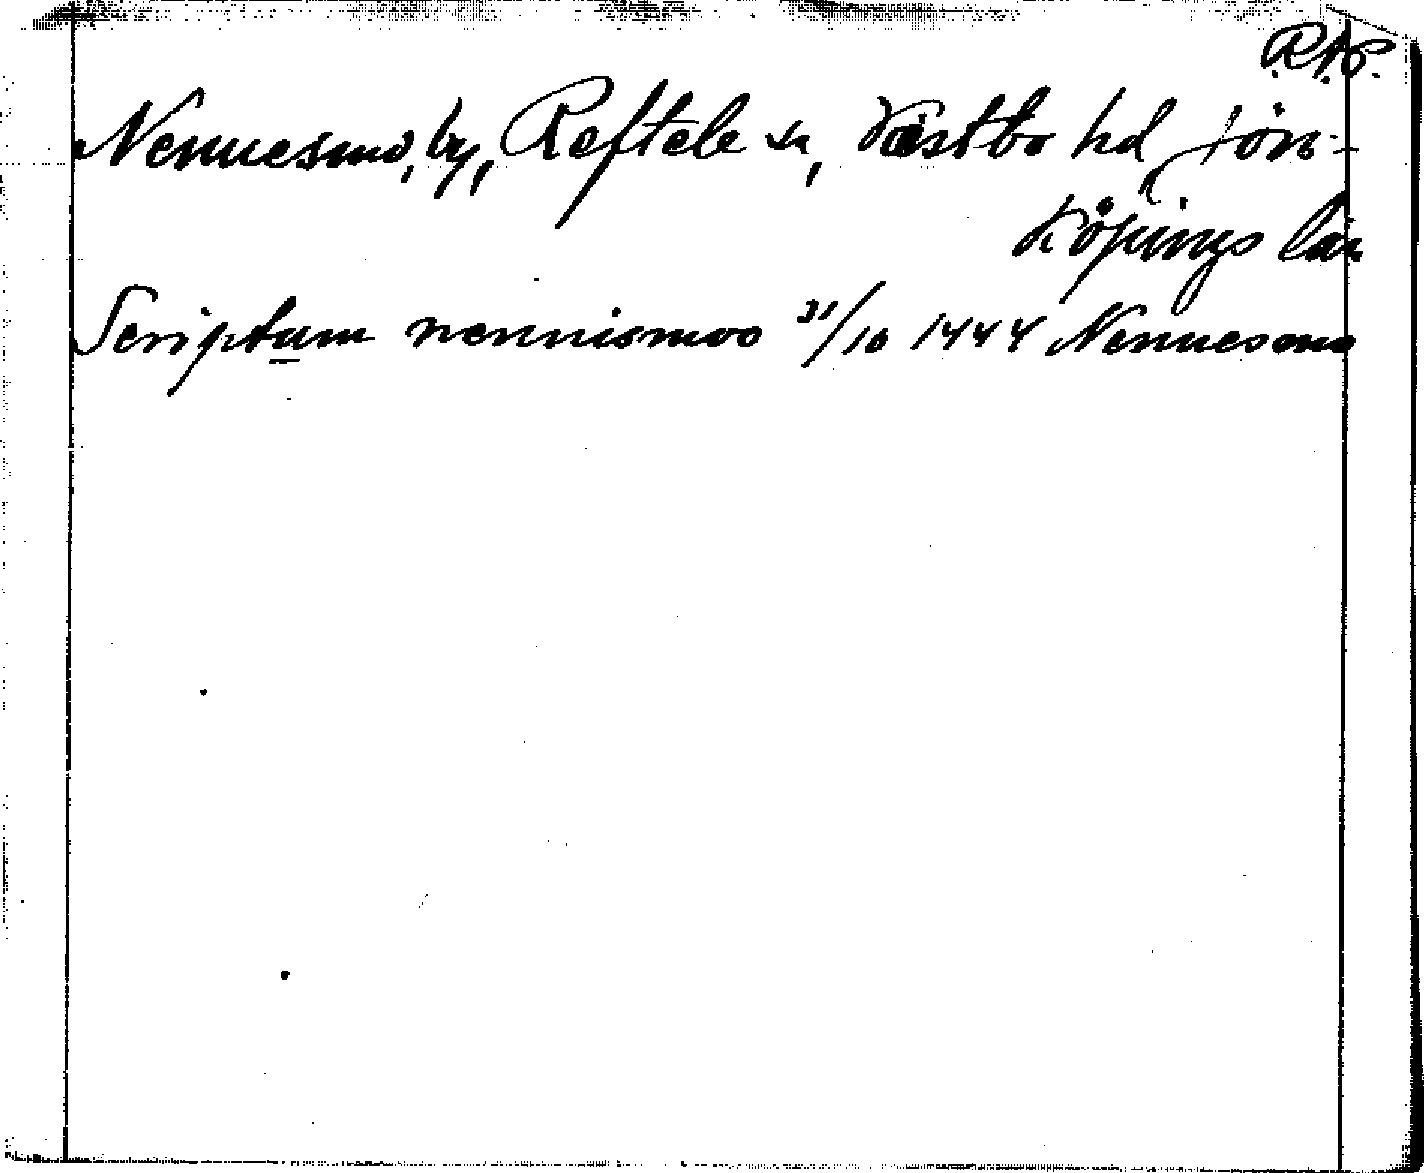 R.A.P.
Nennesmo, by, Reftele sn, Västbo hd, Jön-
köpings län
Scriptum nennismoo 31/10 1444 Nennesmo